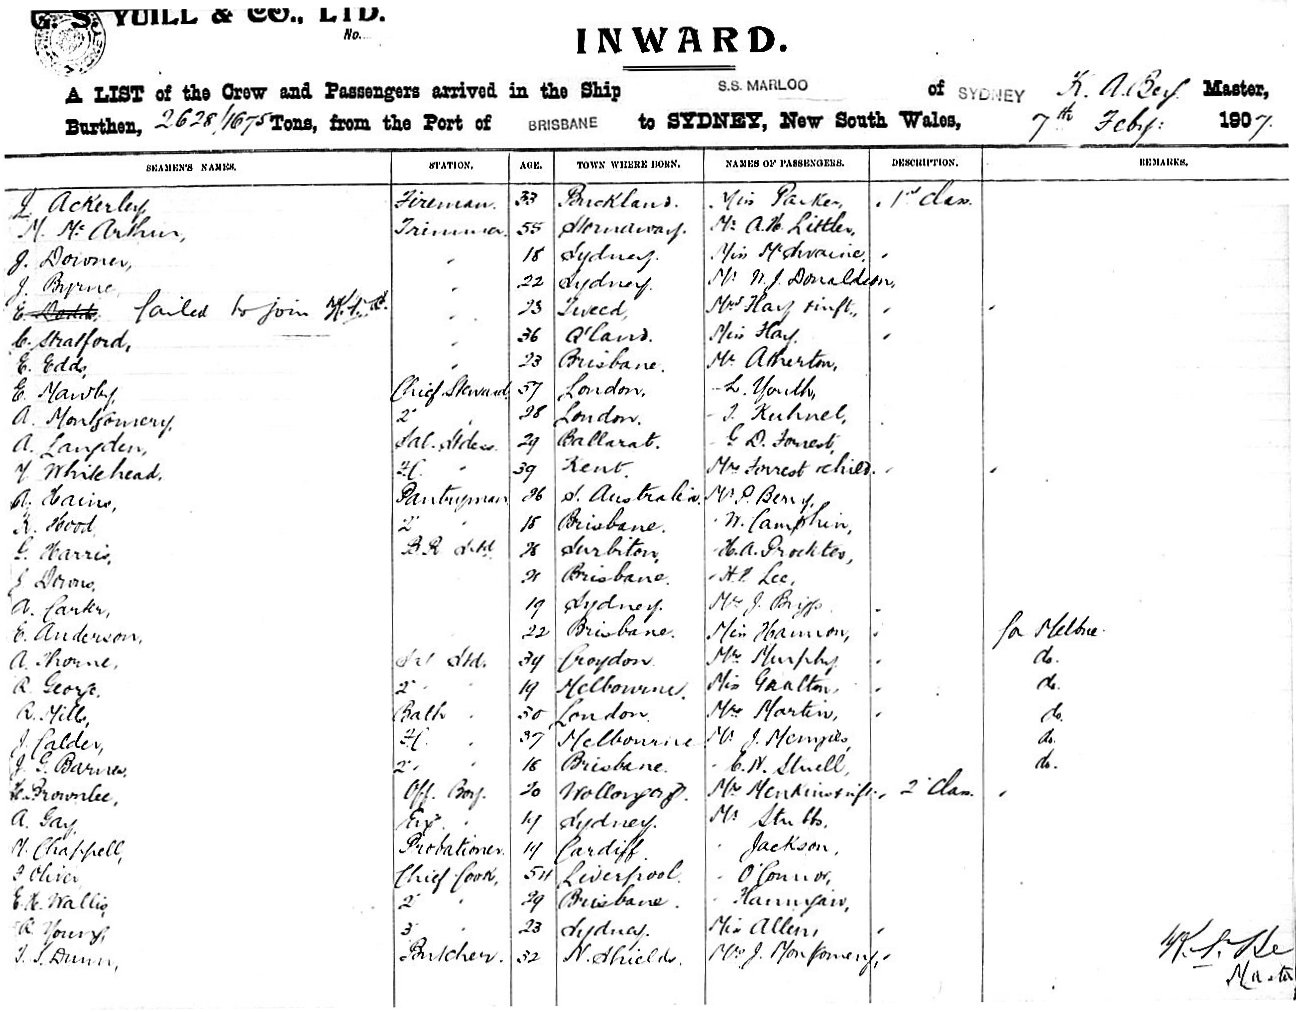 G. S. YUILL & CO., LTD.
No.
INWARD.
A LIST of the Crew and Passengers arrived in the Ship S.S. MARLOO of SYDNEY Master,
Burthen, 2628/1675 Tons, from the Port of BRISBANE to SYDNEY, New South Wales, 7th Feby: 1907.
SEAMEN'S NAMES. STATION. AGE. TOWN WHERE BORN. NAMES OF PASSENGERS. DESCRIPTION. REMARKS.
J Ackerley, Fireman. 33 Buckland. Miss Parker, 1st Class.
M. Mc Arthur, Trimmer. 55 Stornaway. Mr A.H. Littler,
J. Downer, " 18 Sydney. Miss McIlvaine, "
J Byrne, " 22 Sydney. Mr N. J. Donaldson,
E. Dodds, failed to join " 23 Tweed, Mrs Hay & inft., " "
C. Stratford, " 36 Q'land. Miss Hay, "
E. Edds, " 23 Brisbane. Mr Atherton,
E. Mawby, Chief Steward 57 London. " L. Youth,
A. Montgomery, 2" " 28 London. " J. Kuhnel,
A. Langden, Sal. Stdess. 29 Ballarat. " G. D. Forrest,
Whitehead. F.C. " 39 Kent. Mrs Forrest & child. " "
A. Hains, Pantryman 26 S. Australia. Mr P. Berry,
R. Hood, 2" " 18 Brisbane. " W. Camphin,
G. Harris, B.R. Std. Surbiton, " H.A. Prockter,
J Downs, Brisbane. " H.P. Lee,
A. Carter, 19 Sydney. J. Briggs "
E. Anderson, 22 Brisbane. Miss Hannon, " for Melbne.
A. Thorne, Sal Std. 34 Croydon. Mrs Murphy " do.
R. George, 2" " 19 Melbourne. Miss Gralton, " do.
R. Mills, Bath " 50 London. Mrs Martin, " do.
J. Calder, F.C. " 37 Melbourne Mr J. Menzies, do.
J. G. Barnes, 2" " 18 Brisbane. " C. H. do.
H. Brownlee, Off. Boy. 20 Wollongong. Mrs & inft. " 2" Class. "
A. Gay, " 19 Sydney. Mr Stubbs,
Chappell, Probationer. 19 Cardiff. " Jackson,
Oliver, Chief Cook, 54 Liverpool. " O'Connor,
E. H. Wallis, 2" " 29 Brisbane. " Hannigan,
R. Young, 3" " 23 Sydney. Miss Allen, "
T. S. Dunn, Butcher. 32 N. Shields. Mrs J. Montgomery, "
Master